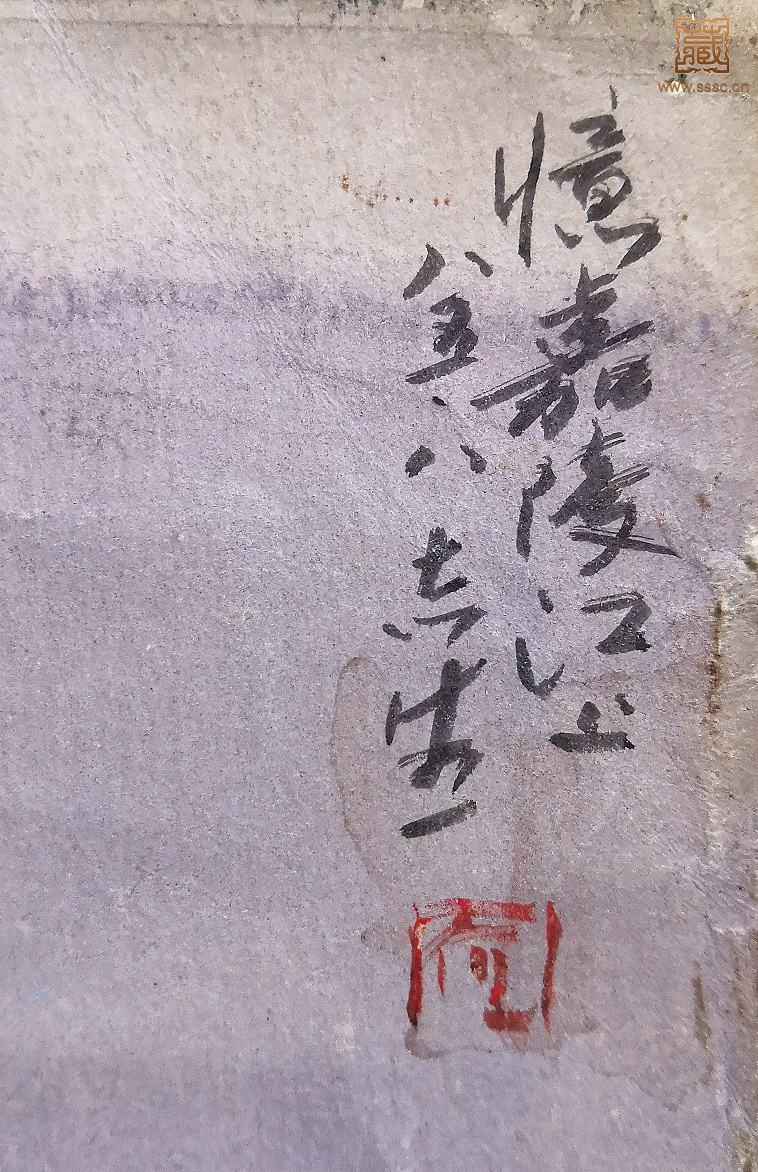 藏
www.sssc.cn
憶嘉陵江上
八五·八 志生
何